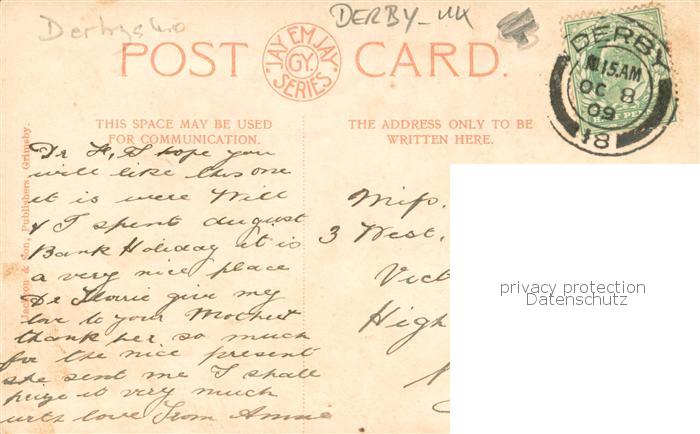 Derbyshire
DERBY-UK
POST CARD.
JAY EM JAY
GY.
SERIES
DERBY
11.15 AM
OC 8
09
18
THIS SPACE MAY BE USED
FOR COMMUNICATION.
THE ADDRESS ONLY TO BE
WRITTEN HERE.
Jackson & Son, Publishers, Grimsby.
Dr F, I hope you
will like this one
it is were Will
& I spent august
Bank Holiday it is
a very nice place
Dr Florrie give my
love to your Mother &
thank her so much
for the nice present
she sent me I shall
prize it very much
with love from Annie
Miss.
3 West.
Vict
High
privacy protection
Datenschutz